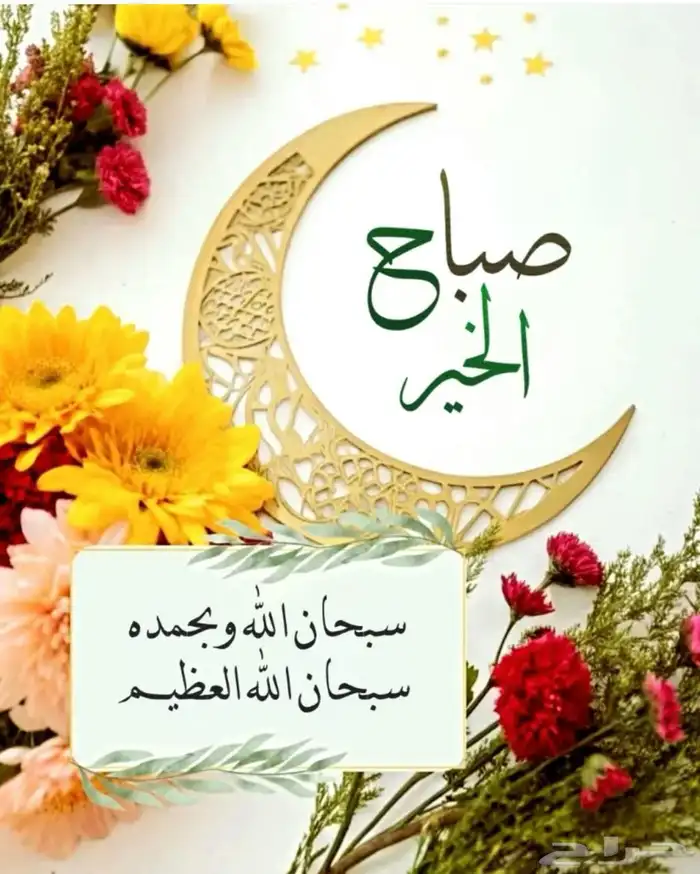 صباح
الخير
سبحان الله وبحمده
سبحان الله العظيم
حراج